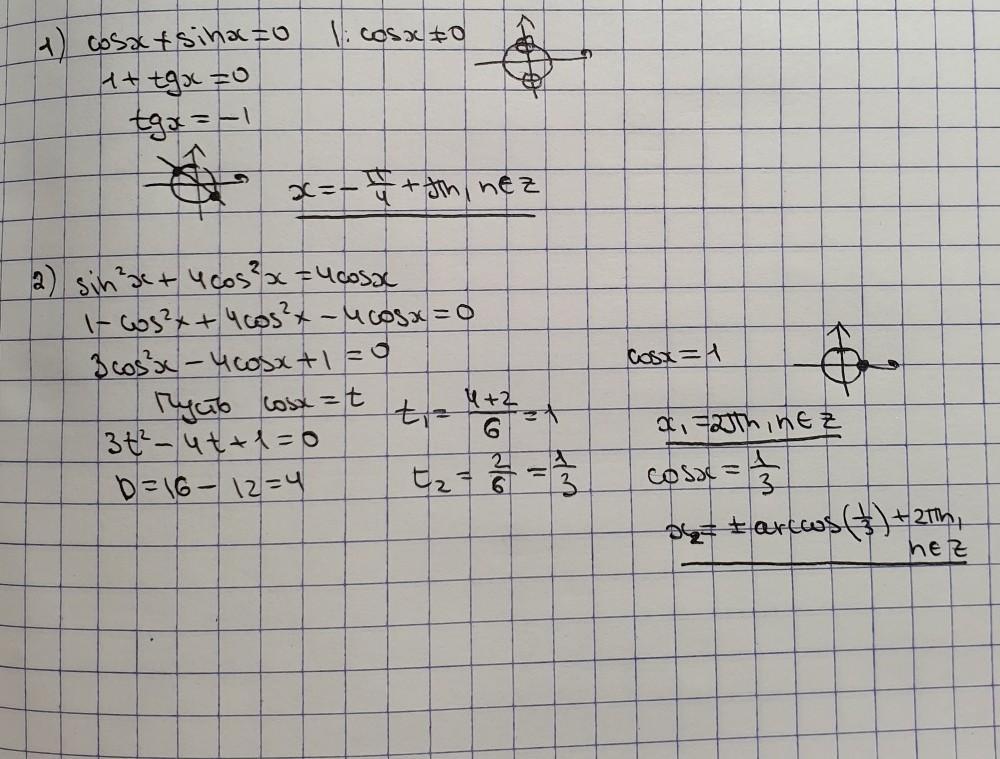 1) cosx + sinx = 0 |: cosx ≠ 0
1 + tgx = 0
tgx = -1
x = -π/4 + πn, n∈Z
2) sin²x + 4cos²x = 4cosx
1 - cos²x + 4cos²x - 4cosx = 0
3cos²x - 4cosx + 1 = 0
Пусть cosx = t
3t² - 4t + 1 = 0
D = 16 - 12 = 4
t₁ = (4+2)/6 = 1
t₂ = 2/6 = 1/3
cosx = 1
x₁ = 2πn, n∈Z
cosx = 1/3
x₂ = ± arccos(1/3) + 2πn,
n∈Z